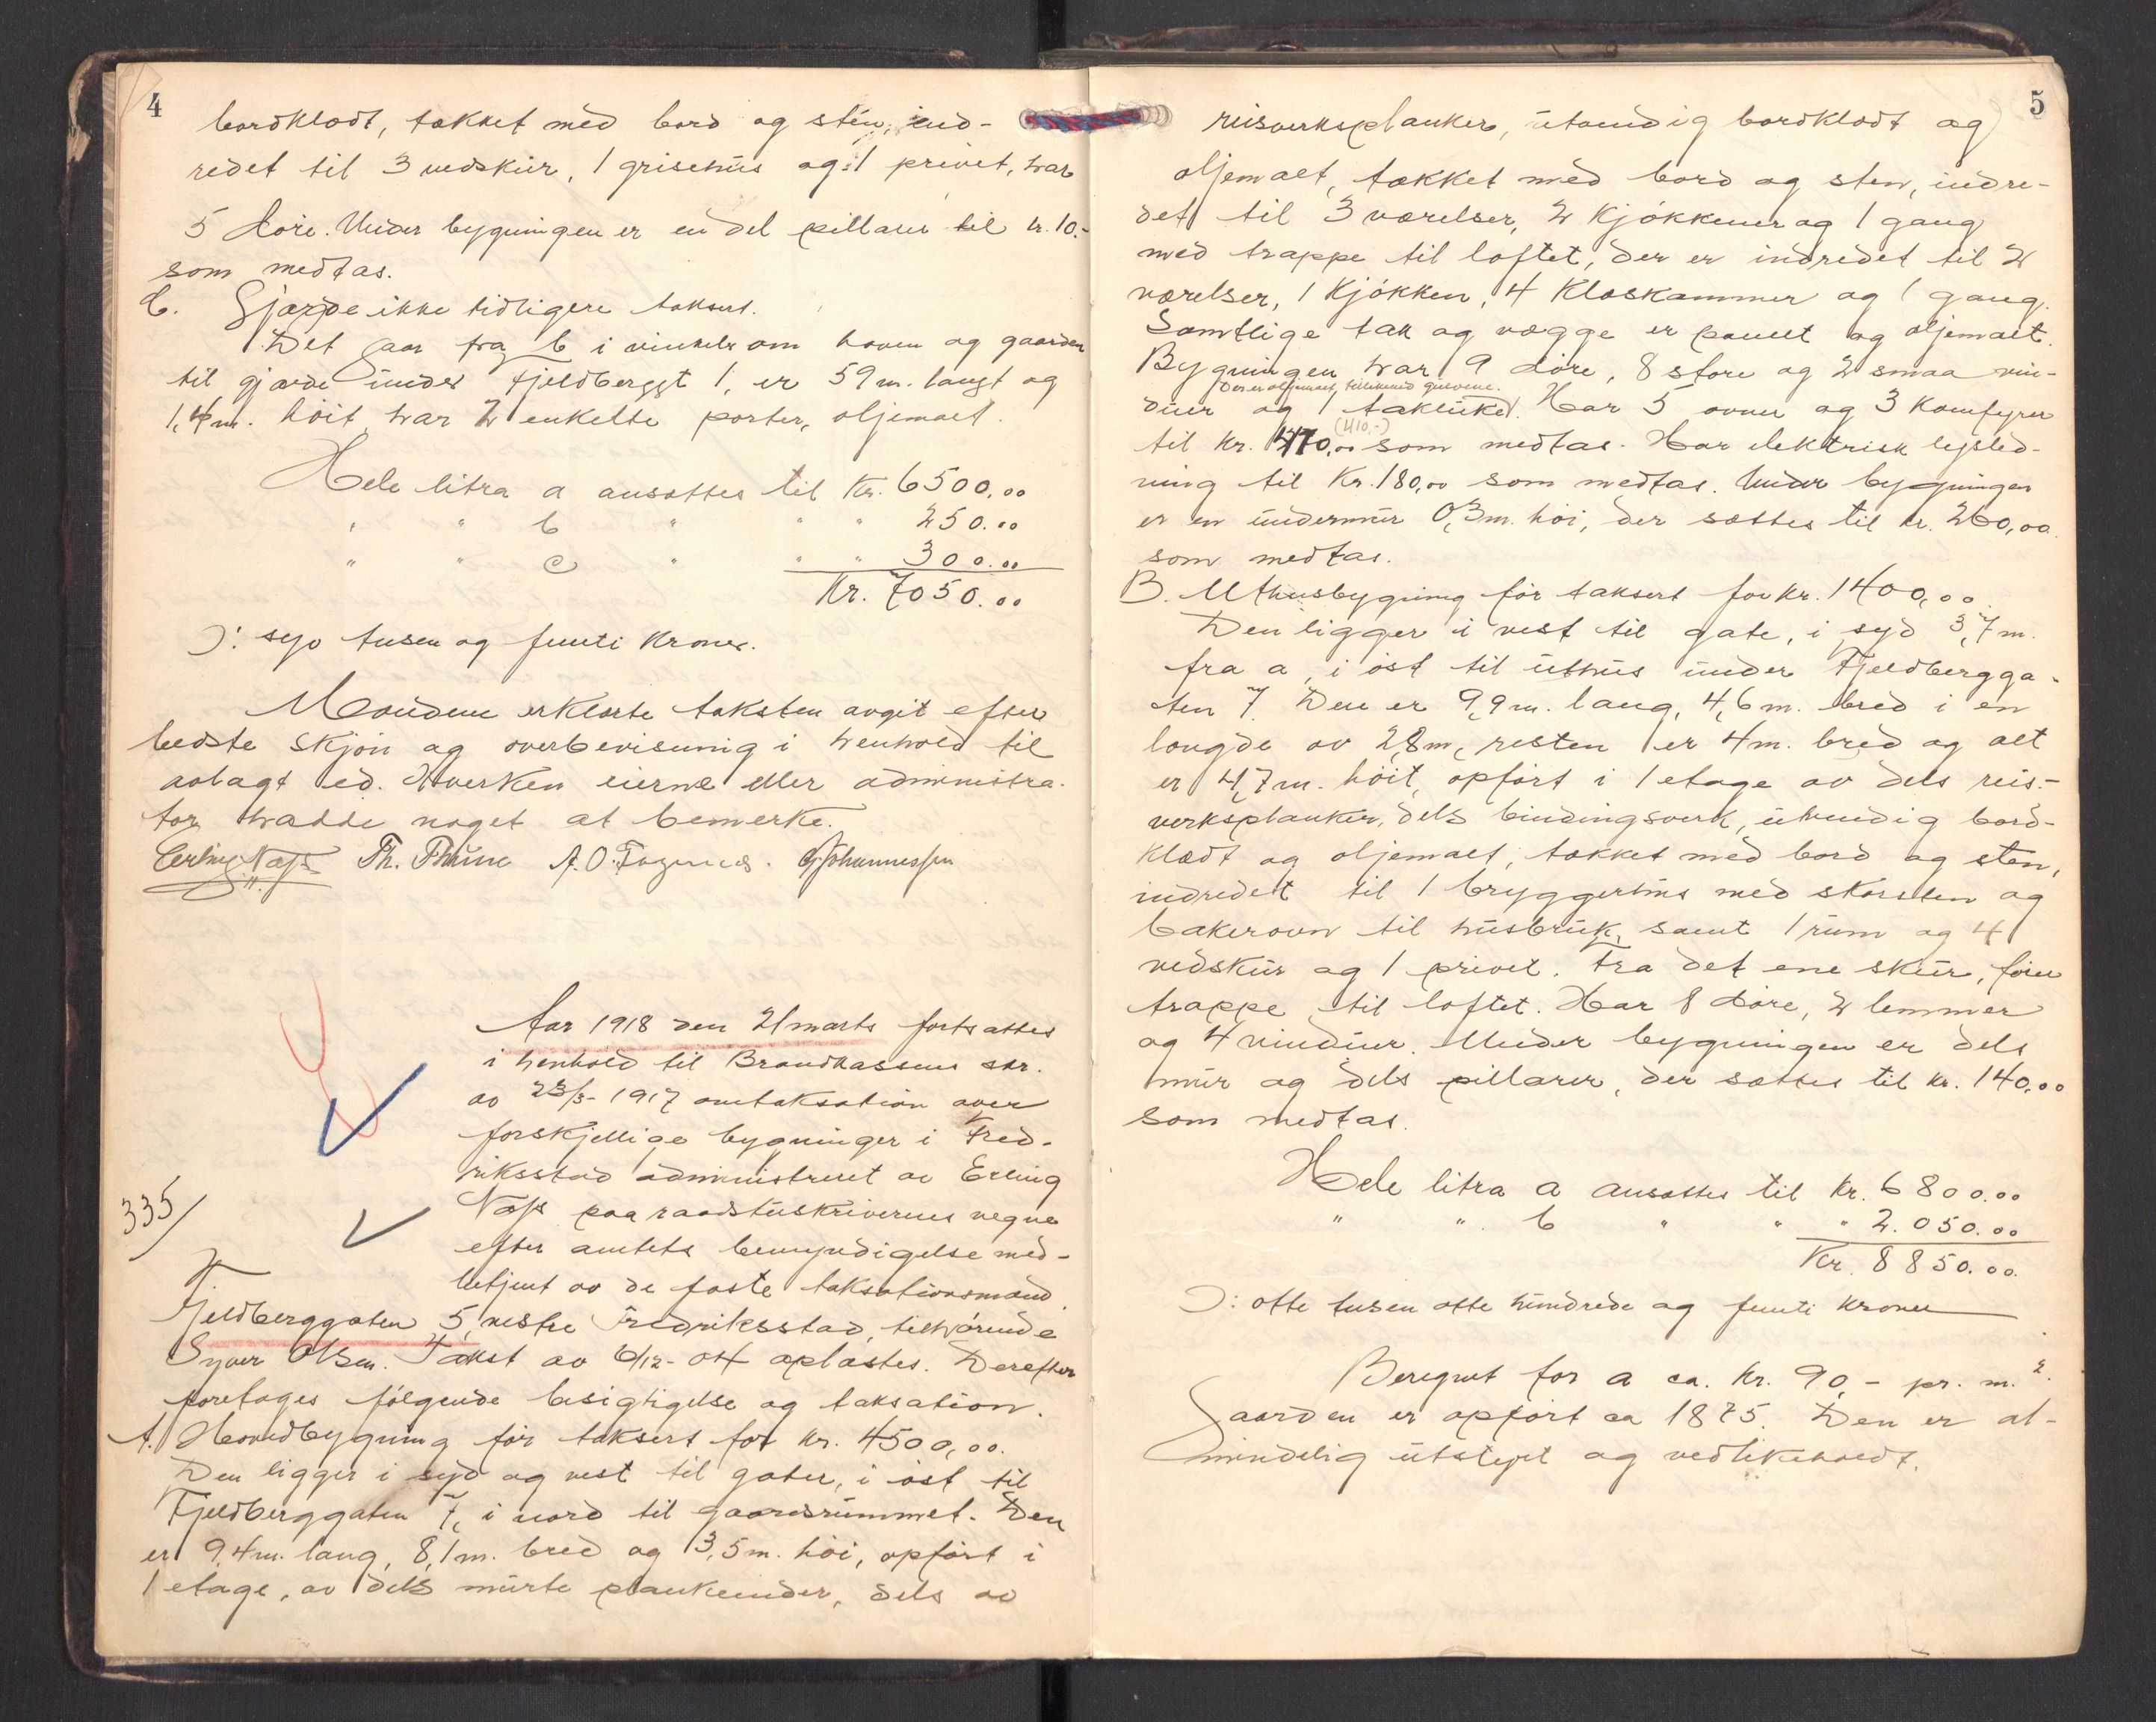 4
bordklædt, tækket med bord og sten, ind-
redet til 3 vedskur, 1 grisehus og 1 privet, har
5 döre. Under bygningen er en del pillarer til kr. 10.-
som medtas.
C. Gjærde ikke tidligere taksert.
Det gaar fra b i vinkel om haven og gaarden
til gjærde under Fjeldberggt 1, er 59 m. langt og
1,4 m. höit, har 2 enkelte porter, oljemalt.
Hele litra a ansættes til Kr. 6500.00
" " b " " " 250.00
" " c " " " 300.00
Kr. 7050.00
ↄ: syv tusen og femti kroner.
Mændene erklærte taksten avgit efter
bedste skjön og overbevisning i henhold til
avlagt ed. Hverken eierne eller administra-
tor hadde noget at bemerke.
Erling Næss Th. Thune A. O. GJohannessen
Aar 1918 den 21 marts fortsattes
i henhold til Brandkassens skr.
av 23/3-1917 omtaksation over
forskjellige bygninger i Fred-
riksstad administreret av Erling
Næss paa raadstuskriverens vegne
efter amtets bemyndigelse med-
betjent av de faste taksationsmænd.
335/
Fjeldberggaten 5, vestre Fredriksstad, tilhörende
Syver Olsen. Takst av 6/12-04 oplæstes. Derefter
foretages fölgende besigtigelse og taksation.
A. Hovedbygning för taksert for kr. 4500,00.
Den ligger i syd og vest til gater, i öst til
Fjeldberggaten 7, i nord til gaardsrummet. Den
er 9,4 m. lang, 8,1 m. bred og 3,5 m. höi, opfört i
1 etage, av dels murte plankeender, dels av
5
reisverksplanker, utvendig bordklædt og
oljemalt, tækket med bord og sten, indre-
det til 3 værelser, 2 kjökkener og 1 gang
med trappe til loftet, der er indredet til 2
værelser, 1 kjökken, 4 klæskammer og 1 gang.
Samtlige tak og vægge er panelt og oljemalt.
Bygningen har 9 döre, 8 store og 2 smaa vin-
Der er oljemalt, tillikemed gulvene.
duer og 1 takluke. Har 5 ovner og 3 komfyrer
(410,-)
til kr. 470,00 som medtas. Har elektrisk lysled-
ning til Kr. 180,00 som medtas. Under bygningen
er en undermur 0,3 m. höi, der sættes til kr. 260,00
som medtas.
B. Uthusbygning för taksert for kr. 1400,00
Den ligger i vest til gate, i syd 3,7 m.
fra a, i öst til uthus under Fjeldbergga-
ten 7. Den er 9,9 m. lang, 4,6 m. bred i en
længde av 2,8 m, resten er 4 m. bred og alt
er 4,7 m. höit, opfört i 1 etage av dels reis-
verksplanker, dels bindingsverk, utvendig bord-
klædt og oljemalt, tækket med bord og sten,
indredet til 1 bryggerhus med skorsten og
bakerovn til husbruk, samt 1 rum og 4
vedskur og 1 privet. Fra det ene skur, förer
trappe til loftet. Har 8 döre, 2 lemmer
og 4 vinduer. Under bygningen er dels
mur og dels pillarer, der sættes til kr. 140,00
som medtas.
Hele litra a ansættes til kr. 6800.00
" " b " " " 2.050.00
Kr. 8850.00.
ↄ: otte tusen otte hundrede og femti kroner
Beregnet for a ca. kr. 90,- pr. m.2.
Gaarden er opfört ca 1875. Den er al-
mindelig utstyrt og vedlikeholdt.